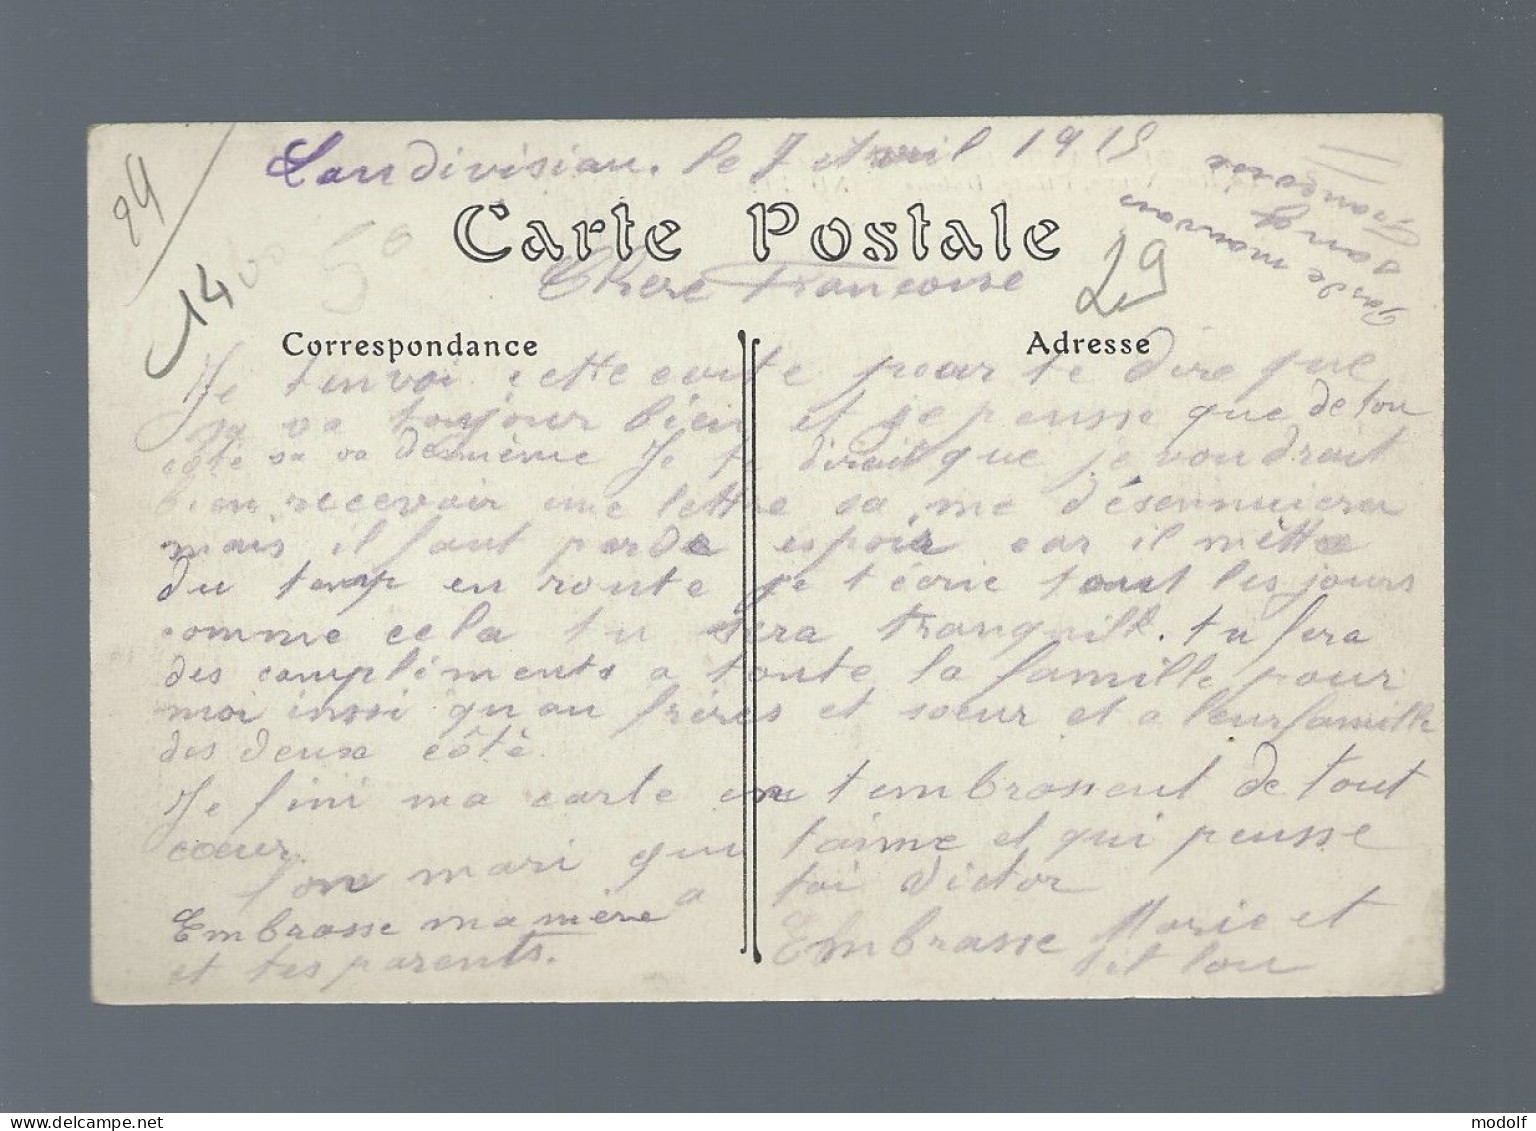 29
1400
50
Landivisiau. le 7 Avril 1915
Pas de mauvais
sang
Françoise
Carte Postale
Chere Francoise
29
Correspondance
Adresse
Je tenvoi cette carte pour te dire que
sa va toujour bien et je pensse que de ton
côté sa va de même Je te dirait que je voudrait
bien recevoir une lettre sa me désennuiera
mais il faut pas espoir car il mette
du temp en route je técrie tout les jours
comme cela tu sera tranquille. tu fera
des compléments a toute la famille pour
moi inssi qu au frères et sœur et a leur famille
des deux côté.
Je fini ma carte en tembrassent de tout
cœur.
Ton mari qui taime et qui pensse
a toi Victor
Embrasse ma mère
et tes parents.
Embrasse Marie et
tit lou
www.delcampe.net
modolf